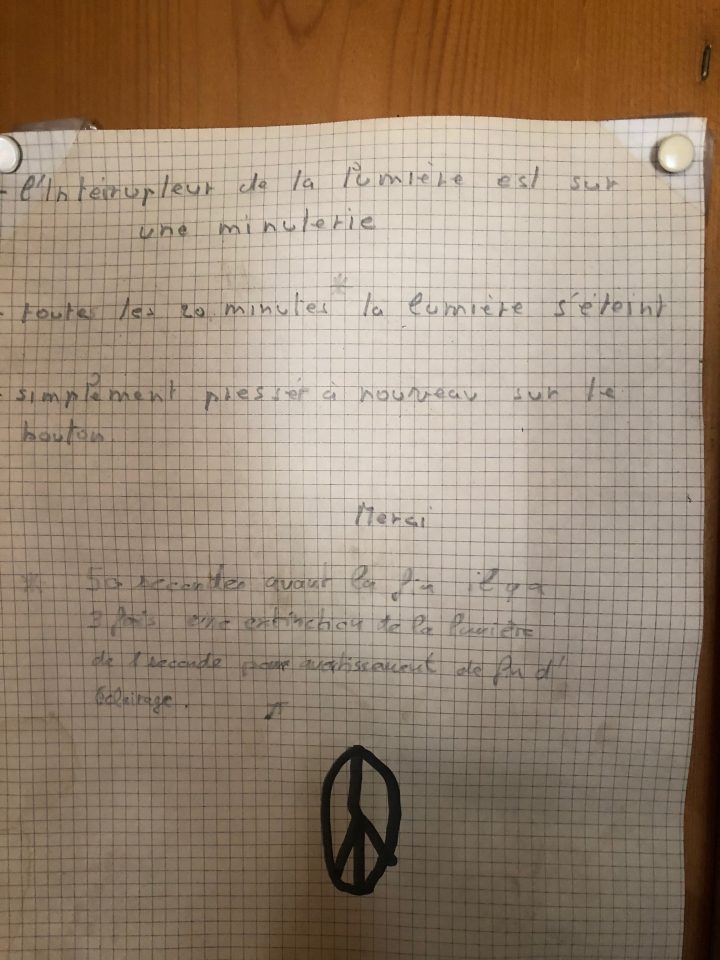 - l'Intérrupteur de la lumière est sur
une minuterie
- toute les 20 minutes * la lumière s'éteint
- simplement presser à nouveau sur le
bouton.
Merci
* 50 secondes avant la fin il y a
3 fois une extinction de la lumière
de 1 seconde pour avertissement de fin d'
éclairage.